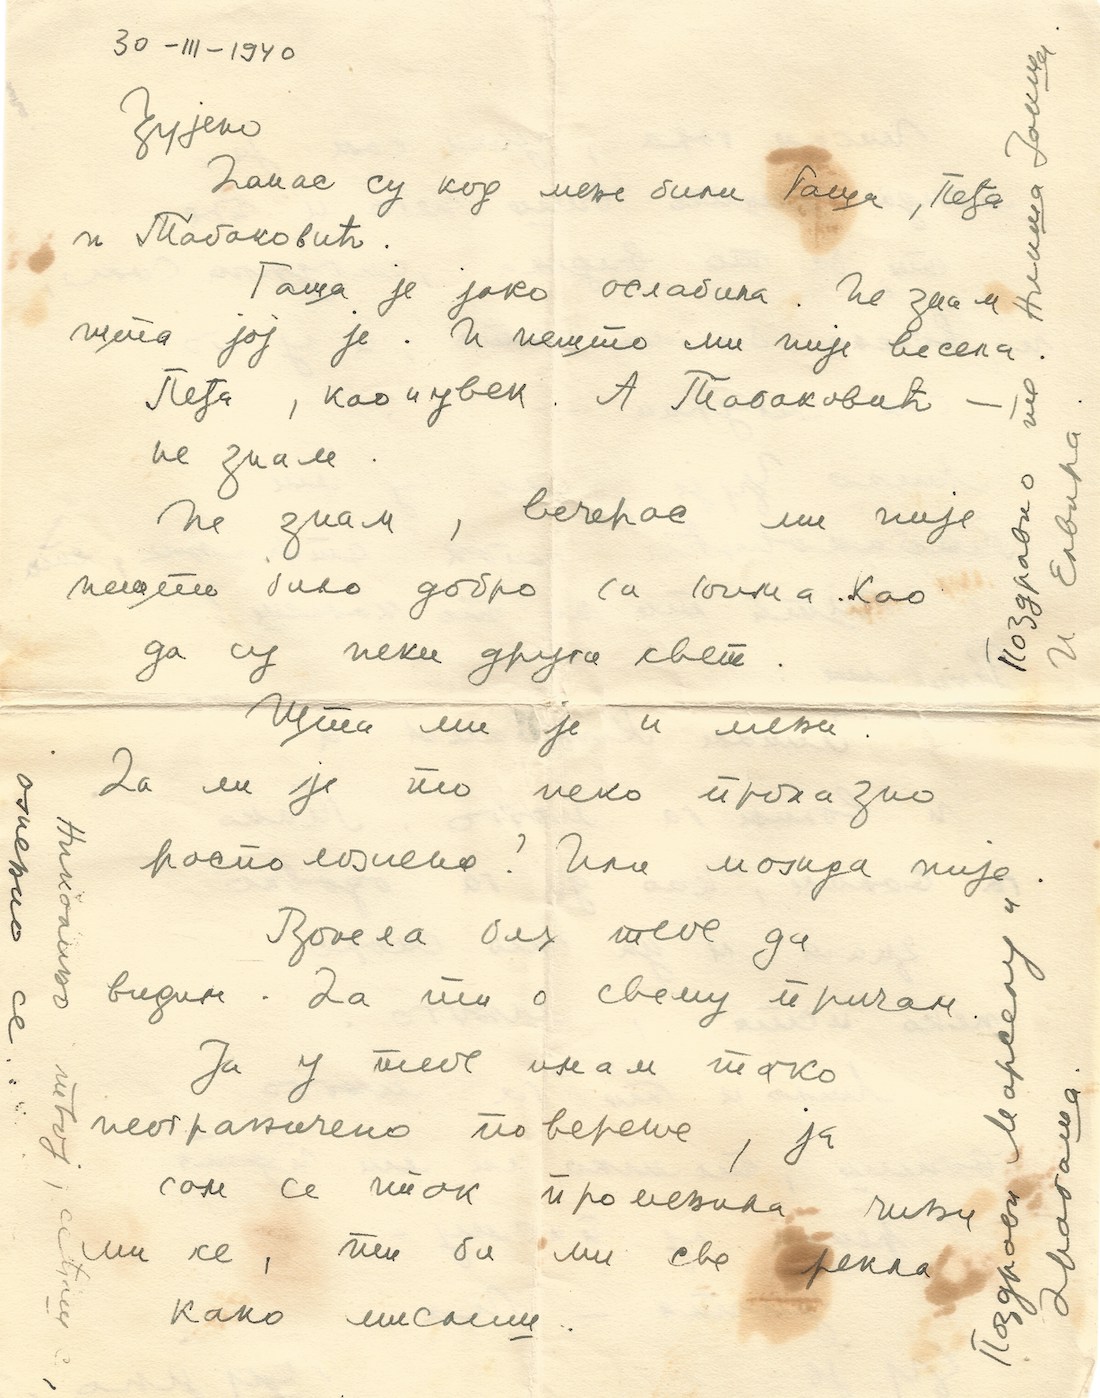 30-III-1940
Зујено
Данас су код мене били Гаша, Пеђа
и Табаковић.
Гаша је јако ослабила. Не знам
шта јој је. И нешто ми није весела.
Пеђа, као и увек. А Табаковић —
не знам.
Не знам, вечерас ми није
нешто било добро са њима. Као
да су неки други свет.
Шта ми је и мени.
Да ли је то неко пролазно
расположење? Или можда није.
Волела бих тебе да
видим. Да ти о свему причам.
Ја у тебе имам тако
неограничено поверење, ја
сам се ипак променила чини
ми се, ти би ми све рекла
како мислиш.
Поздравио те Јаша
И Елвира.
Поздрави Марселу и
Николић твој,
оженио се.